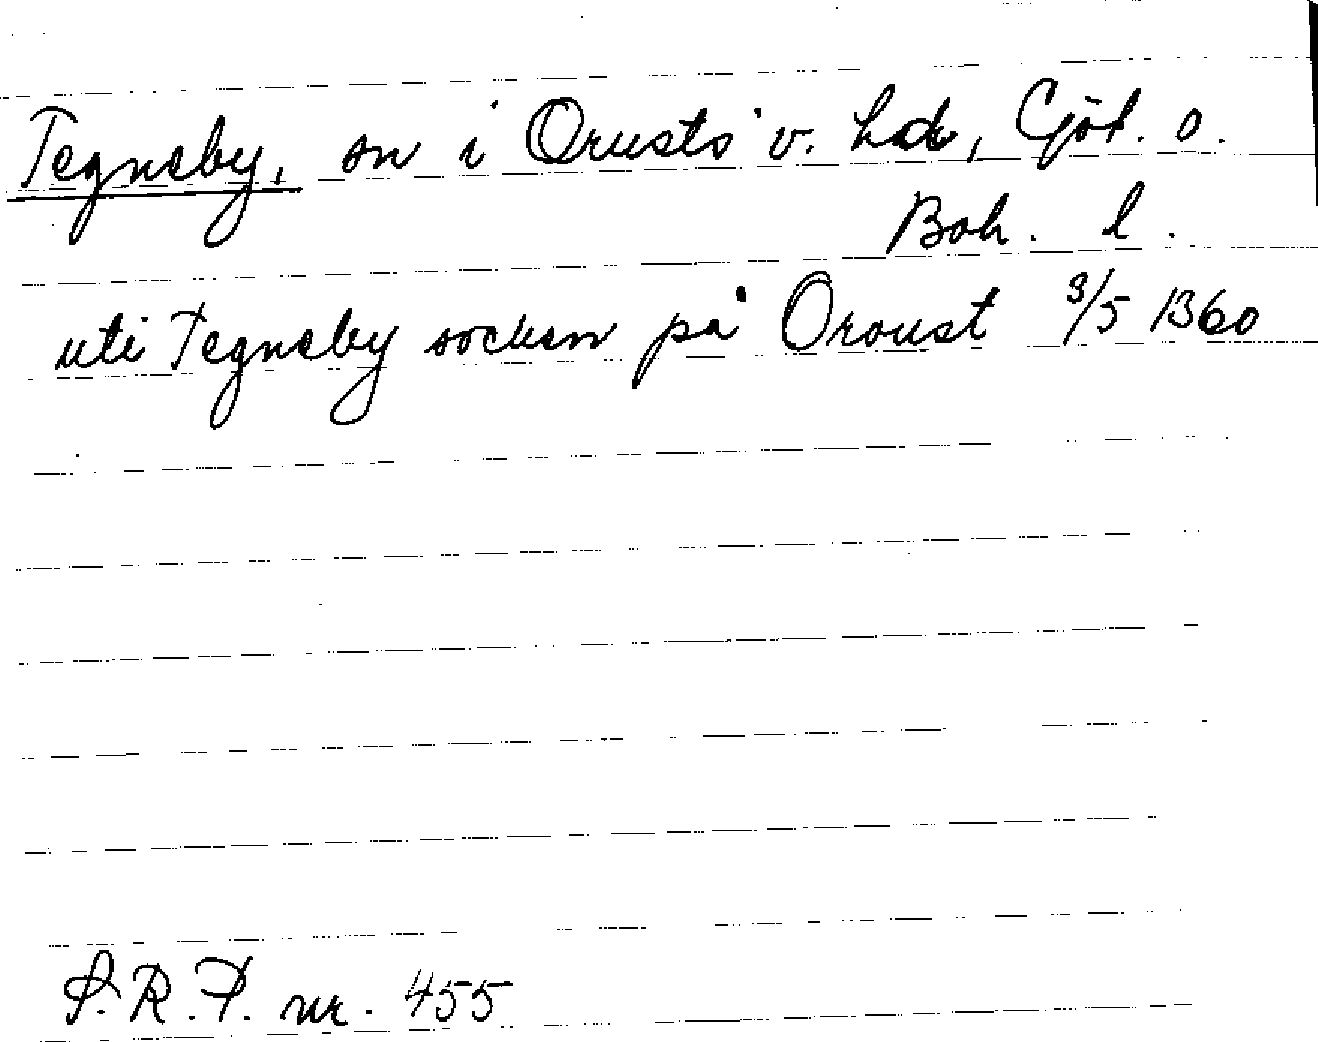 Tegneby, sn i Orusts v. hd, Göt. o.
Boh. l.
uti Tegneby socken på Oroust 3/5 1360
S.R.P. nr. 455